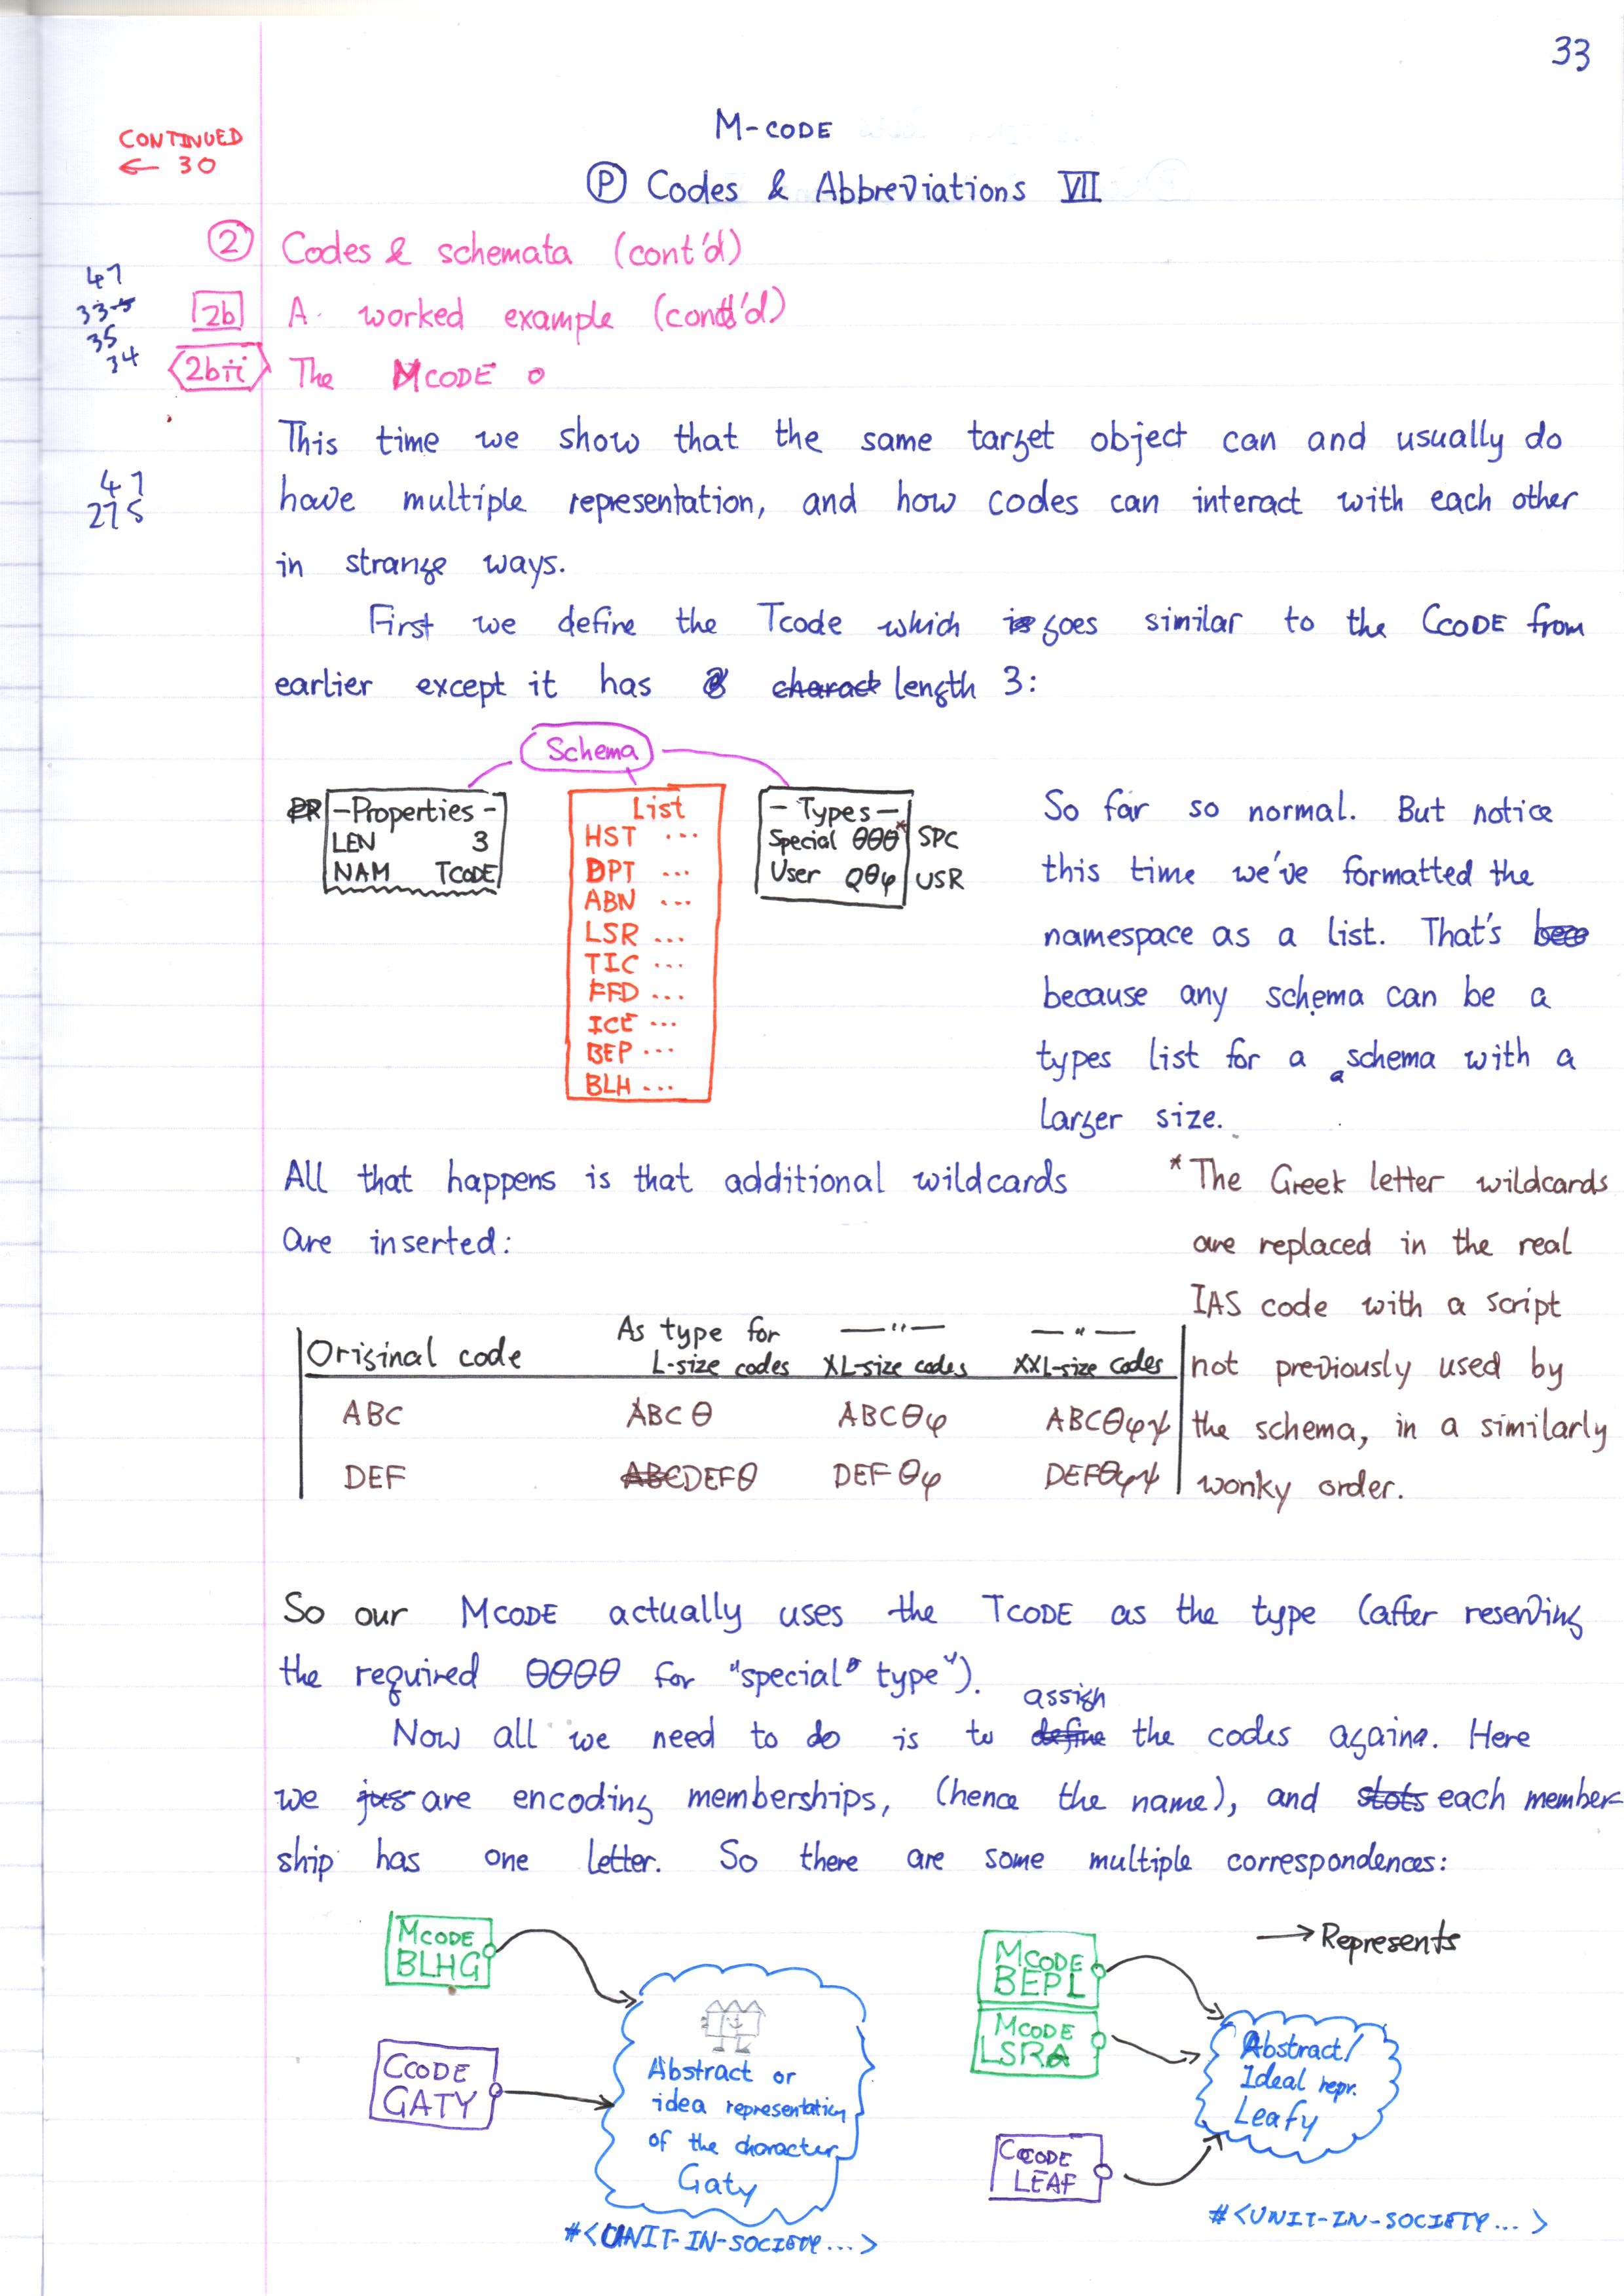 33
M-CODE
CONTINUED
← 30
Ⓟ Codes & Abbreviations VII
② Codes & schemata (cont'd)
47
33
35
34
2b A worked example (cont'd)
2bii The MCODE
This time we show that the same target object can and usually do
47
275
have multiple representation, and how codes can interact with each other
in strange ways.
First we define the Tcode which goes similar to the CCODE from
earlier except it has length 3:
Schema
-Properties-
LEN 3
NAM TCODE
List
HST ...
DPT ...
ABN ...
LSR ...
TIC ...
FFD ...
ICE ...
BEP ...
BLH ...
-Types-
Special θθθ* SPC
User Qθφ USR
So far so normal. But notice
this time we've formatted the
namespace as a list. That's
because any schema can be a
types list for a schema with a
larger size.
All that happens is that additional wildcards
are inserted:
*The Greek letter wildcards
are replaced in the real
IAS code with a script
not previously used by
the schema, in a similarly
wonky order.
Original code As type for L-size codes —"— XL-size codes —"— XXL-size codes
ABC ABCθ ABCθφ ABCθφψ
DEF DEFθ DEFθφ DEFθφψ
So our MCODE actually uses the TCODE as the type (after reserving
the required θθθθ for "special" type").
Now all we need to do is to assign the codes again. Here
we are encoding memberships, (hence the name), and each member-
ship has one letter. So there are some multiple correspondences:
MCODE
BLHG
CCODE
GATY
Abstract or
idea representation
of the character
Gaty
#<UNIT-IN-SOCIETY...>
→ Represents
MCODE
BEPL
MCODE
LSRA
CCODE
LEAF
Abstract/
Ideal repr.
Leafy
#<UNIT-IN-SOCIETY...>